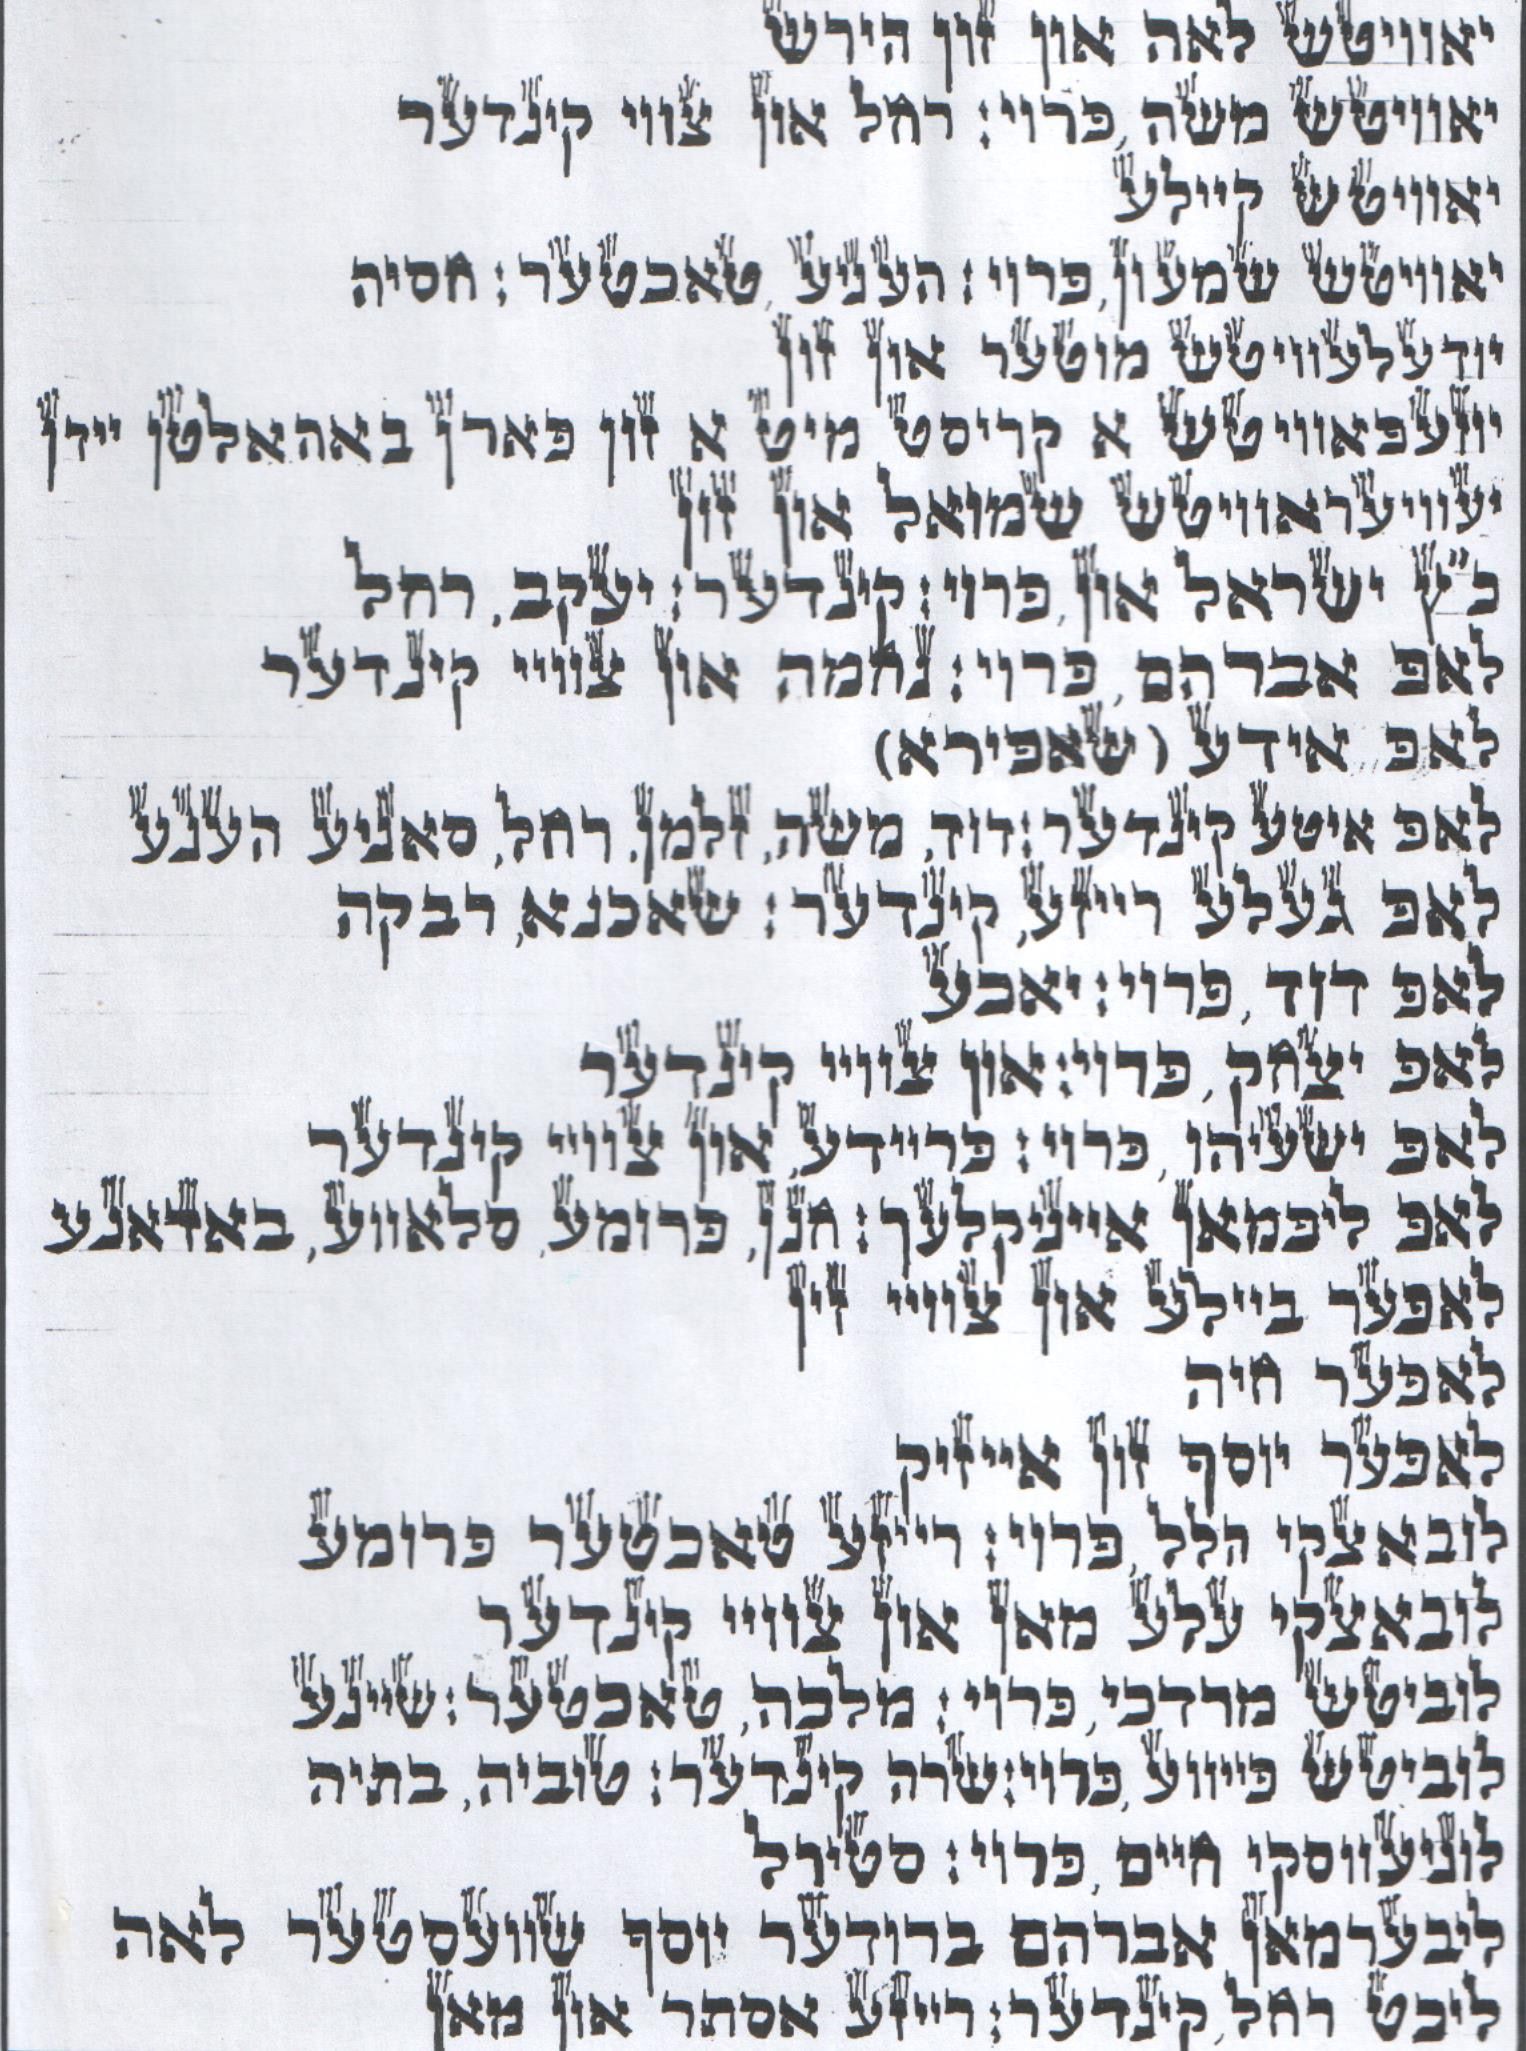 יאוויטש לאה און זון הירש
יאוויטש משה, פרוי: רחל און צווי קינדער
יאוויטש קיילע
יאוויטש שמעון, פרוי: העניע, טאכטער: חסיה
יודעלעוויטש מוטער און זון
יוזעפאוויטש א קריסט מיט א זון פארן באהאלטן יידן
יעוויעראוויטש שמואל און זון
כ"ץ ישראל און, פרוי: קינדער: יעקב, רחל
לאפ אברהם, פרוי: נחמה און צוויי קינדער
לאפ אידע (שאפירא)
לאפ איטע קינדער: דוד, משה, זלמן, רחל, סאניע הענע
לאפ געלע רייזע, קינדער: שאכנא, רבקה
לאפ דוד, פרוי: יאכע
לאפ יצחק, פרוי: און צוויי קינדער
לאפ ישעיהו, פרוי: פריידע, און צוויי קינדער
לאפ ליפמאן אייניקלעך: חנן, פרומע, סלאווע, באדאנע
לאפער ביילע און צוויי זין
לאפער חיה
לאפער יוסף זון אייזיק
לובאצקי הלל, פרוי: רייזע טאכטער פרומע
לובאצקי עלע מאן און צוויי קינדער
לוביטש מרדכי, פרוי: מלכה, טאכטער: שיינע
לוביטש פייווע, פרוי: שרה קינדער: טוביה, בתיה
לוניעווסקי חיים, פרוי: סטירל
ליבערמאן אברהם ברודער יוסף שוועסטער לאה
ליבט רחל, קינדער: רייזע אסתר און מאן